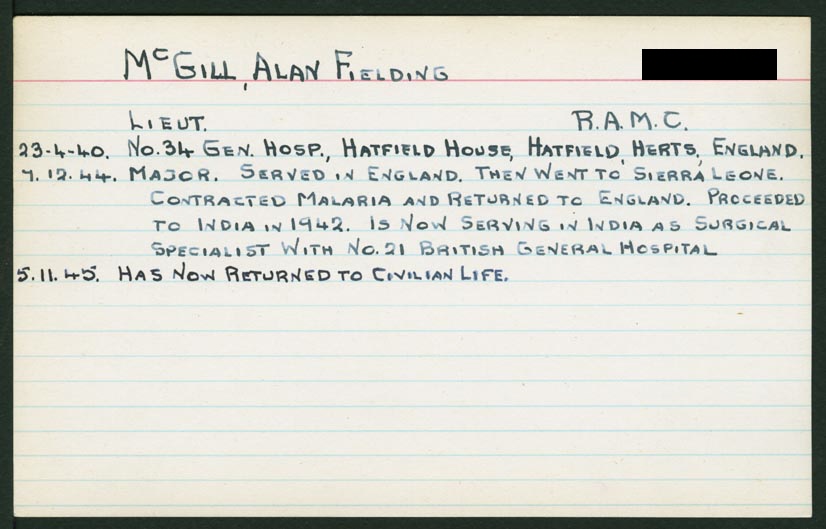 McGILL, ALAN FIELDING
LIEUT. R.A.M.C.
23-4-40. No. 34 GEN. HOSP., HATFIELD HOUSE, HATFIELD, HERTS, ENGLAND.
7.12.44. MAJOR. SERVED IN ENGLAND. THEN WENT TO SIERRA LEONE.
CONTRACTED MALARIA AND RETURNED TO ENGLAND. PROCEEDED
TO INDIA IN 1942. IS NOW SERVING IN INDIA AS SURGICAL
SPECIALIST WITH No. 21 BRITISH GENERAL HOSPITAL
5.11.45. HAS NOW RETURNED TO CIVILIAN LIFE.